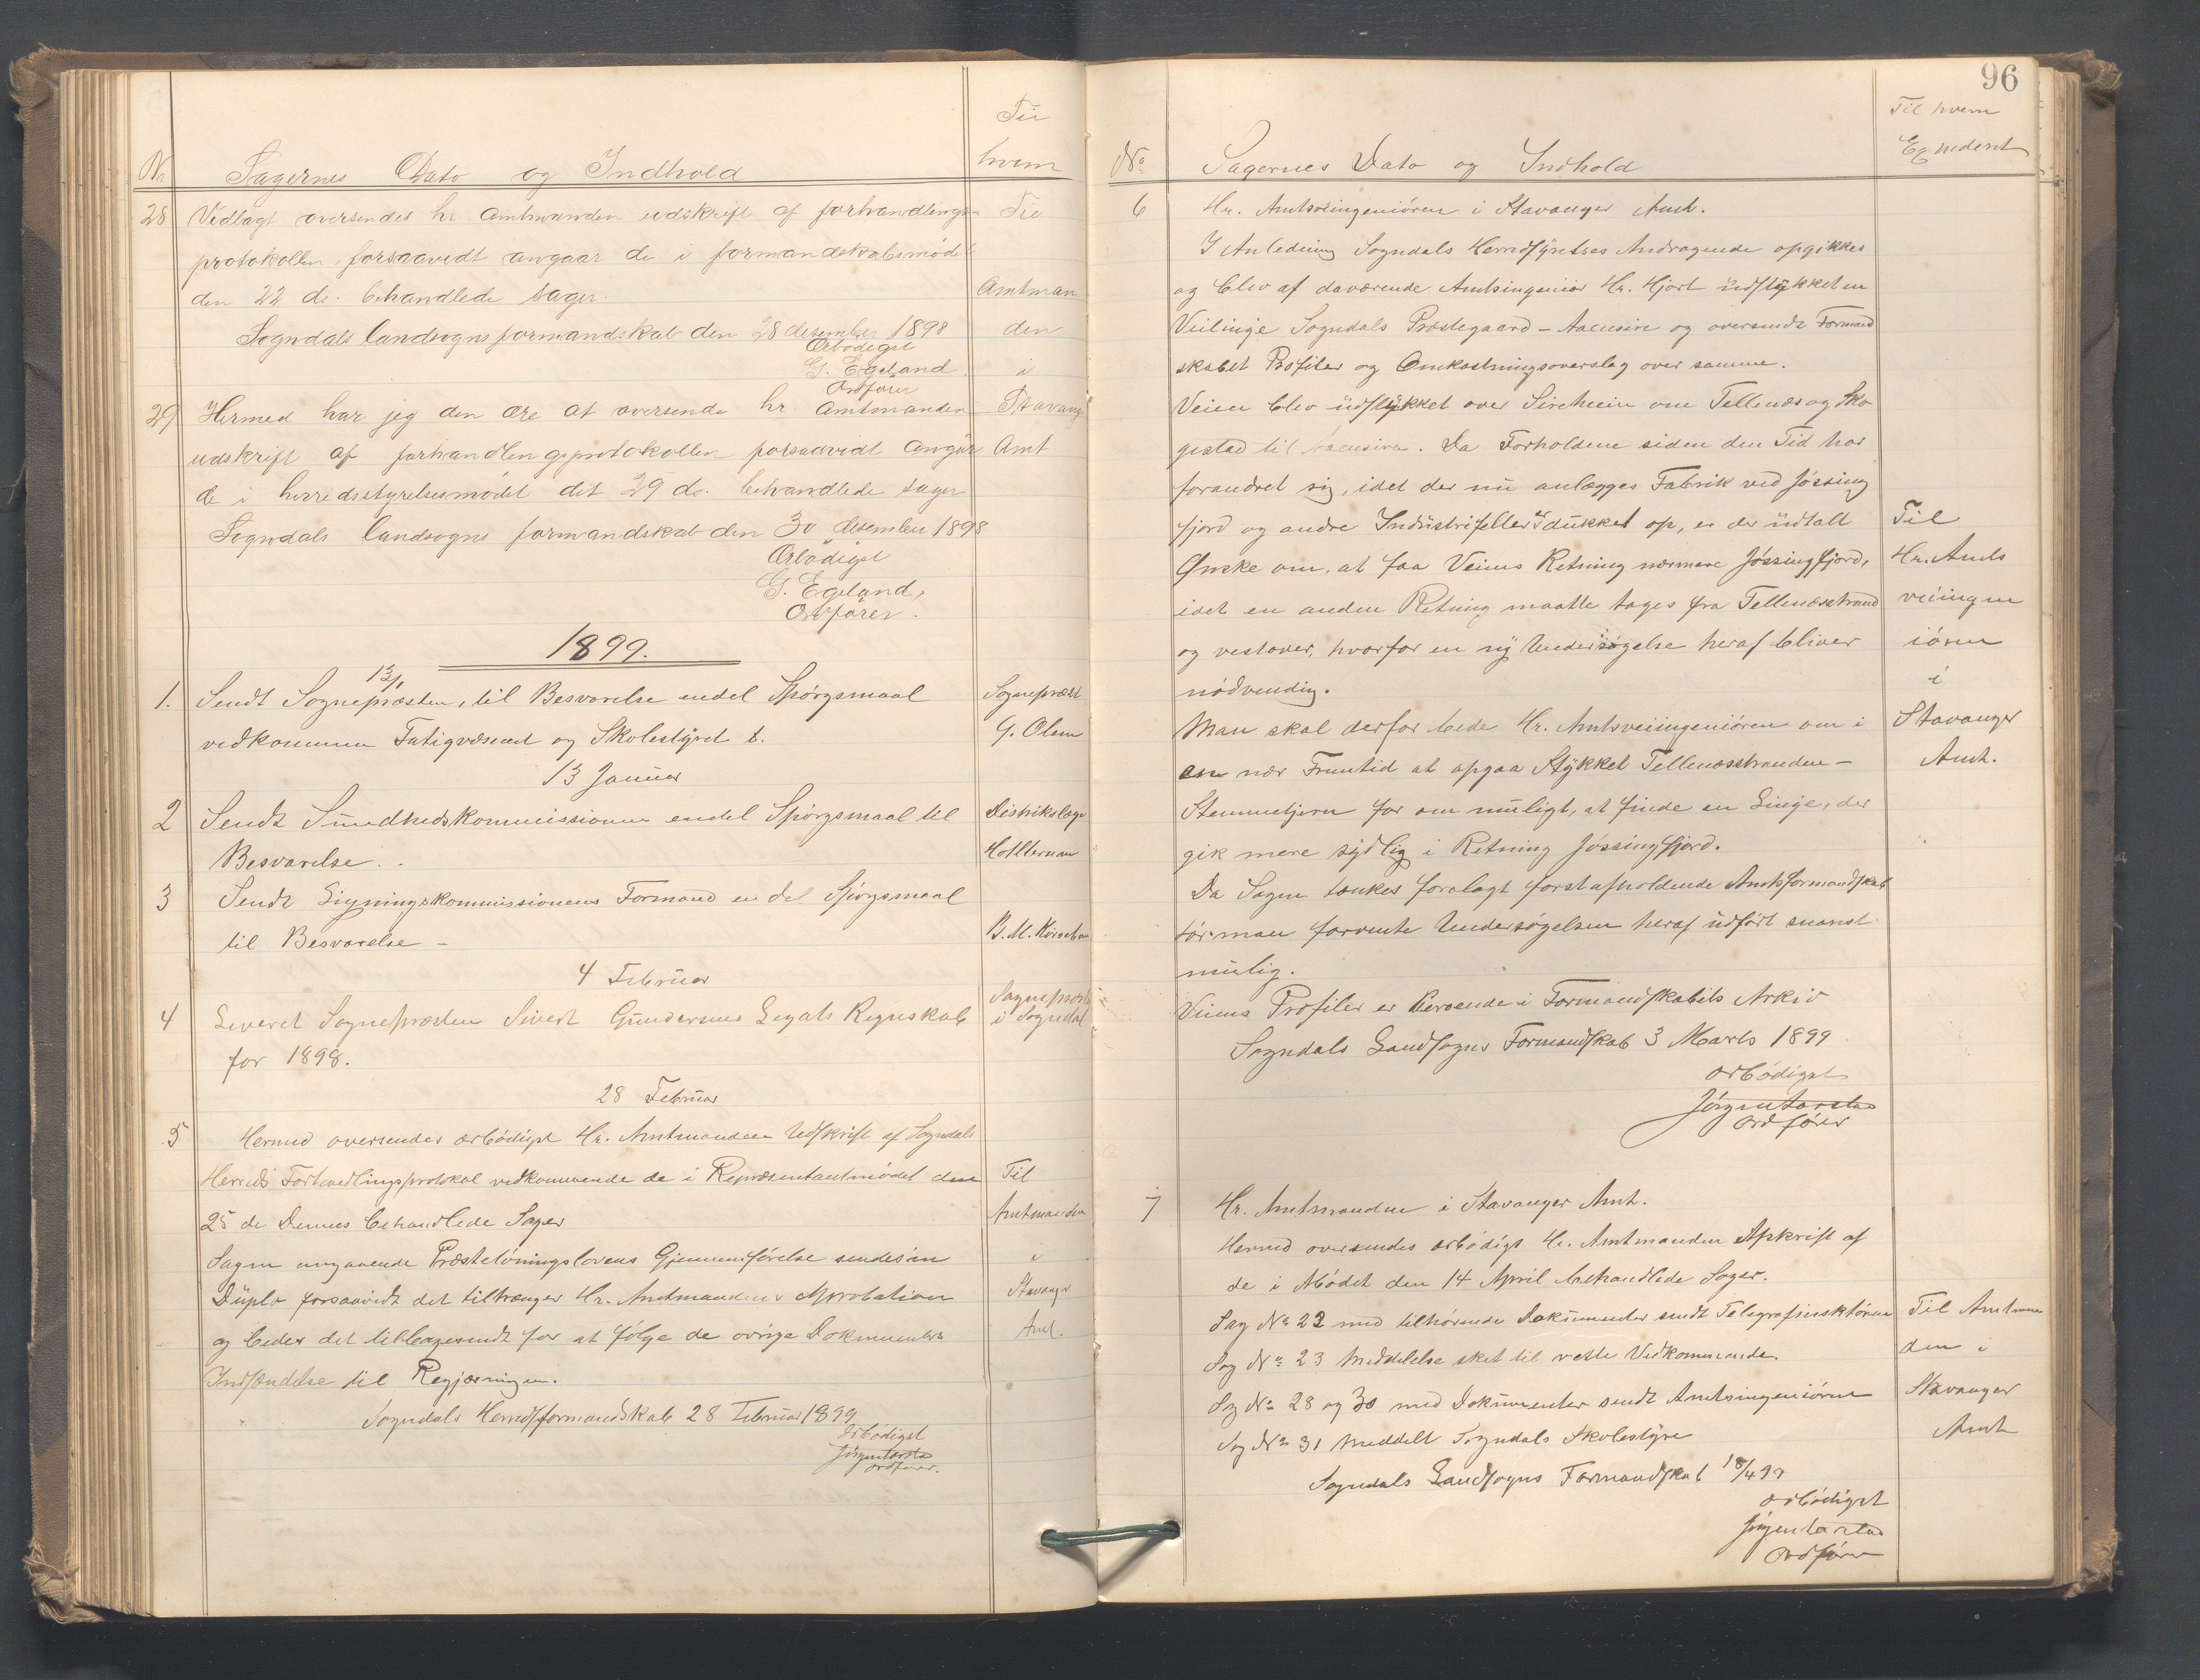 Til
hvem
No Sagernes Dato og Indhold
28 Vedlagt oversendes hr amtmanden udskrift af forhandlings-
protokollen, forsaavidt angaar de i formandskabsmødet
den 22 ds. behandlede sager.
Sogndals landsogns formandskab den 28 desember 1898
Ærbødigst
G. Egeland
Ordfører
Til
Amtman
den
i
Stavang
Amt
29 Hermed har jeg den ære at oversende hr. amtmanden
udskrift af forhandlingsprotokollen forsaavidt angår
de i herredsstyrelsesmødet det 29 ds. behandlede sager
Sogndals landsogns formandskab den 30 desember 1898
Ærbødigst
G. Egeland,
Ordfører.
1899.
13/1
1. Sendt Sognepræsten, til Besvarelse endel Spørgsmaal
vedkommen Fatigvæsenet og Skolestyret
Sognepræst
G. Olsen
13 Januar
2 Sendt Sundhedskommissionen endel Spørgsmaal til
Besvarelse.
Distrikslæge
3 Sendt Ligningskommissionens Formand en del Spørgsmaal
til Besvarelse –
B. M.
4 Februar
4 Leveret Sognepræsten Sivert Gundersens Legats Regnskab
for 1898.
Sognepræst
i Sogndal
28 Februar
5 Hermed oversendes ærbødigst Hr. Amtmanden Udskrift af Sogndals
Herreds Forhandlingsprotokol vedkommende de i Repræsentantmødet den
25 de Dennes behandlede Sager
Sagen angaaende Præstelønningslovens Gjennemførelse sendes in
Duplo forsaavidt det tiltrænger Hr. Amtmandens Aprobation
og bedes det tilbagesendt for at følge de øvrige Dokumenters
Indsendelse til Regjæringen.
Sogndals Herredsformandskab 28 Februar 1899
ærbødigst
Jørgen
ordfører.
Til
Amtmanden
i
Stavanger
Amt.
96
Til hvem
Expederet
No Sagernes Dato og Indhold
6 Hr. Amtsveiingeniøren i Stavanger Amt.
I Anledning Sogndals Herredsstyrelses Andragende opgikkes
og blev af daværende Amtsingeniør Hr. Hjort udstykket en
Veilinje Sogndals Præstegaard – Aaensire og oversendt Formand
skabet Profiler og Omkostningsoverslag over samme.
Veien blev udstykket over Sireheien om Tellenæs og Sko
gestad til Aaensira. Da Forholdene siden den Tid har
forandret sig, idet der nu anlægges Fabrik ved Jøssing
fjord og andre Industrifelter er dukket op, er der udtalt
Ønske om, at faa Veiens Retning nærmere Jøssingfjord,
idet en anden Retning maatte tages fra Tellenæsstrand
og vestover, hvorfor en ny Undersøgelse heraf bliver
nødvendig.
Man skal derfor bede Hr. Amtsveiingeniøren om i
en nær Fremtid at opgaa Stykket Tellenæsstranden –
Stemmetjern for om muligt, at finde en Linje, der
gik mere sydlig i Retning Jøssingfjord.
Da Sagen tænkes foralagt førstafholdende Amtsformandskab
tør man forvente Undersøgelsen heraf udført snarest
mulig.
Veiens Profiler er Beroende i Formandskabets Arkiv
Sogndals Landsogns Formandskab 3 Marts 1899
ærbødigst
Jørgen
ordfører
Til
Hr. Amts
veiingen
iøren
i
Stavanger
Amt.
7 Hr. Amtmanden i Stavanger Amt.
Hermed oversendes ærbødigst Hr. Amtmanden Afskrift af
de i Mødet den 14 April behandlede Sager.
Sag No 22 med tilhørende Dokumenter sendt Telegrafinsktøren
Sag No 23 Meddelelse sket til rette Vedkommende.
Sag No 28 og 30 med Dokumenter sendt Amtsingeniøren
Sag No 31 Meddelt Sogndals Skolestyre
Sogndals Landsogns Formandskab 18/4 99
ærbødigst
Jørgen
ordfører
Til Amtman
den i
Stavanger
Amt